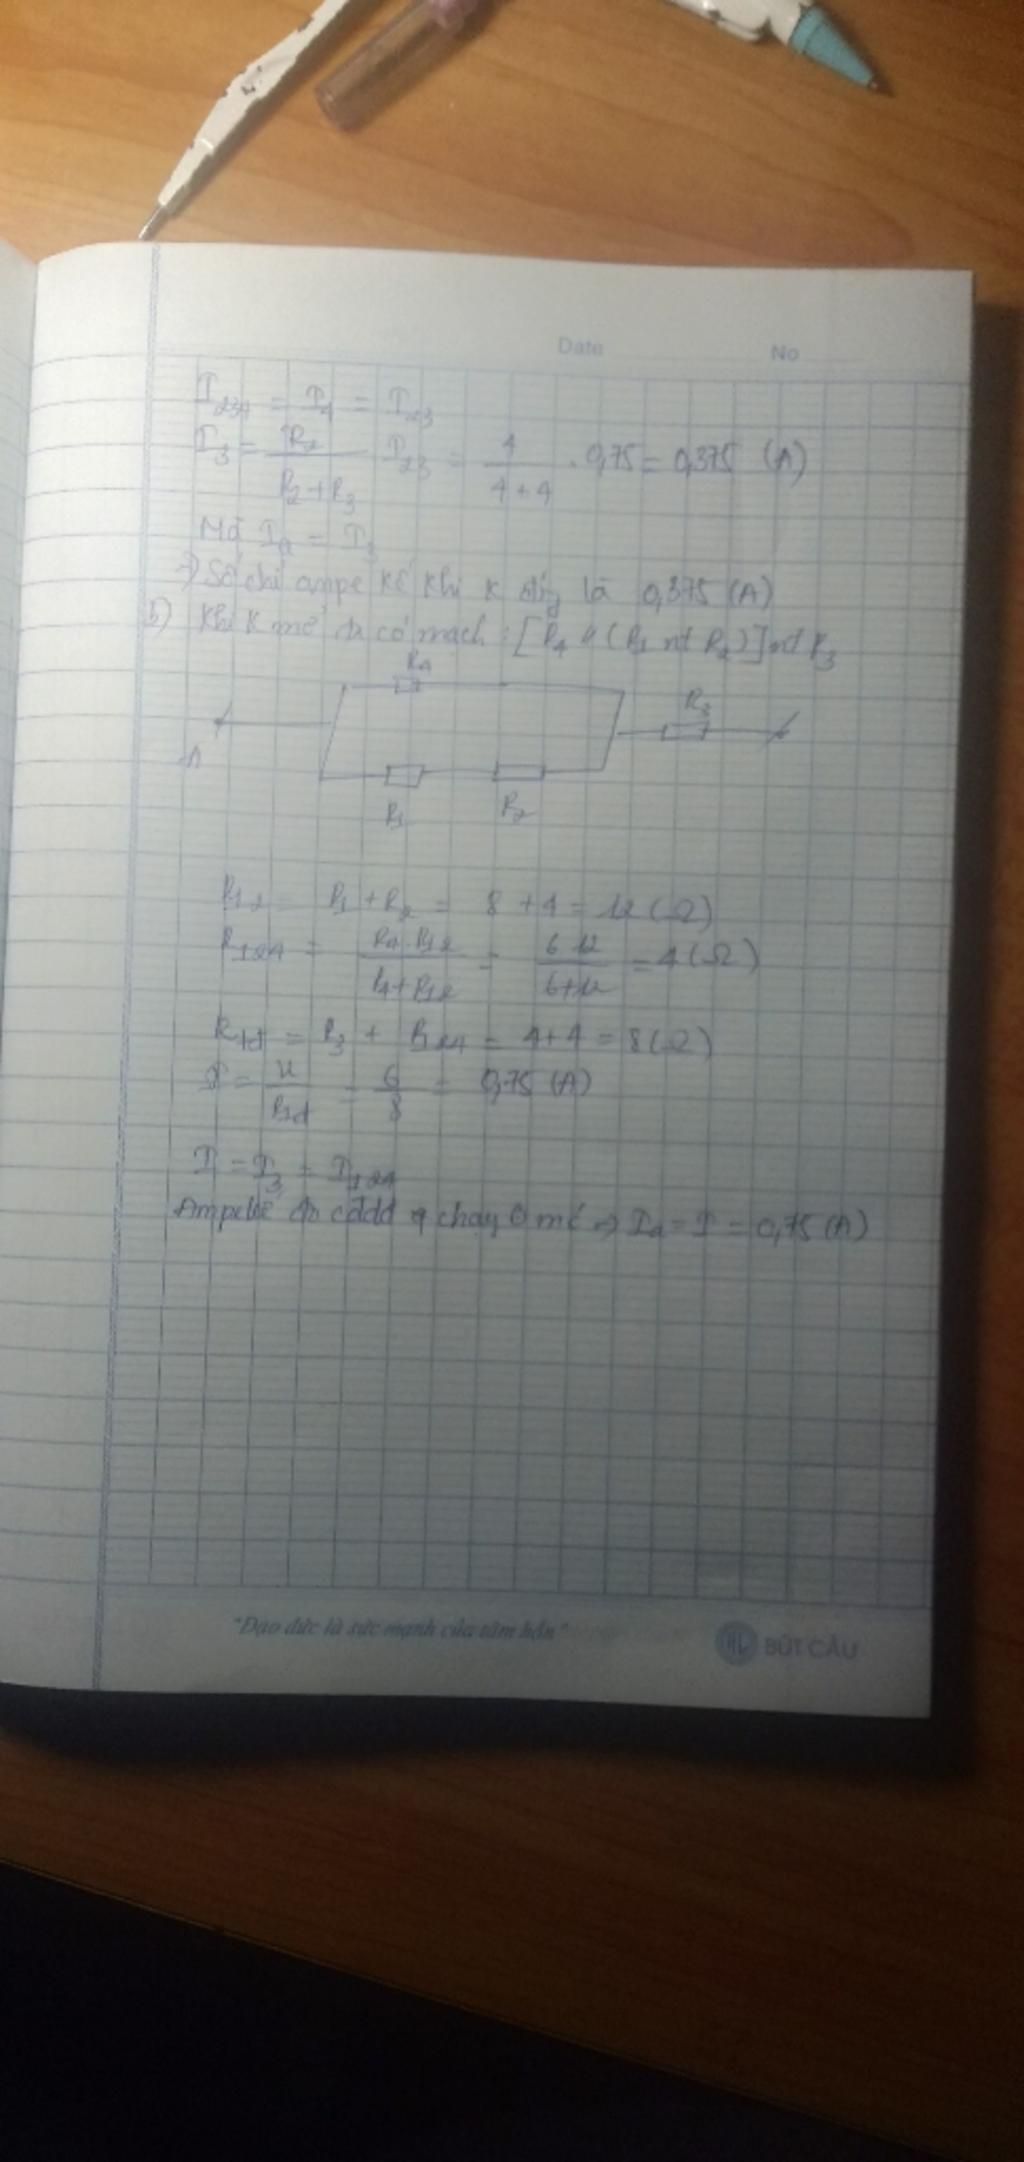 Date No
I234 = I4 = I23
I3 = R2 / (R2 + R3) I23 = 4 / (4 + 4) . 0,75 = 0,375 (A)
Mà Ia = I3
=> Số chỉ ampe kế khi K đóng là 0,375 (A)
b) Khi K mở ta có mạch : [R4 // (R1 nt R2)] nt R3
R4
R3
A
R1 R2
R12 = R1 + R2 = 8 + 4 = 12 (Ω)
R124 = R4 . R12 / (R4 + R12) = 6 . 12 / (6 + 12) = 4 (Ω)
Rtđ = R3 + R124 = 4 + 4 = 8 (Ω)
I = U / Rtđ = 6 / 8 = 0,75 (A)
I = I3 = I124
Ampe kế đo cđdđ q chạy mạch => Ia = I = 0,75 (A)
"Đạo đức là sức mạnh của tâm hồn"
BÚT CÂU